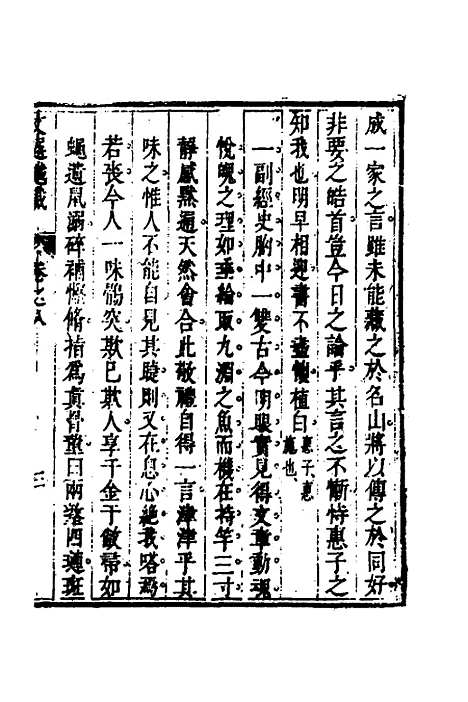 成一家之言雖未能藏之於名山將以傳之於同好
非要之皓首豈今日之論乎其言之不慚恃惠子之
知我也明早相迎書不盡懷植白惠子惠施也
一副經史胸中一雙古今明眼實見得文章動魂
悅魄之理如垂綸取九淵之魚而機在持竿三寸
靜感默通天然會合此敬禮自得一言津津乎其
味之惟人不能自見其醜則又在息心絶我略
若喪今人一味鶻突欺已欺人享千金于敝帚如
蠅遺鼠溺碎補慳脩指為真骨董曰兩漆四璉斑